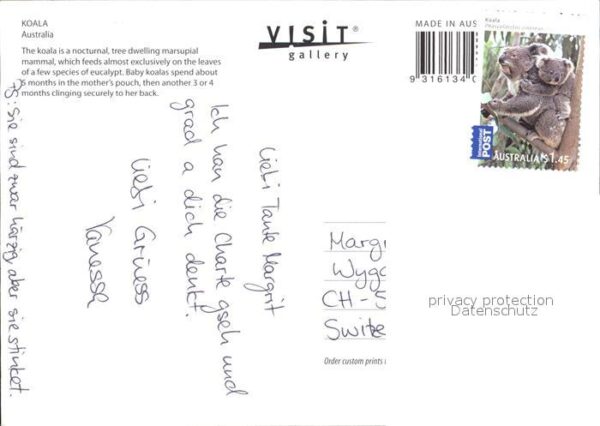 KOALA
Australia
The koala is a nocturnal, tree dwelling marsupial
mammal, which feeds almost exclusively on the leaves
of a few species of eucalypt. Baby koalas spend about
5 months in the mother's pouch, then another 3 or 4
months clinging securely to her back.
VISIT®
gallery
MADE IN AUS
9 316134 0
Koala
International
POST
AUSTRALIA $1.45
Liebi Tante Margrit
Ich han die Charte gseh und
grad a dich denkt.
Liebi Grüess
Vanessa
PS: Sie sind zwar härzig, aber sie stinket.
Margr
Wygo
CH-5
Switze
privacy protection
Datenschutz
Order custom prints